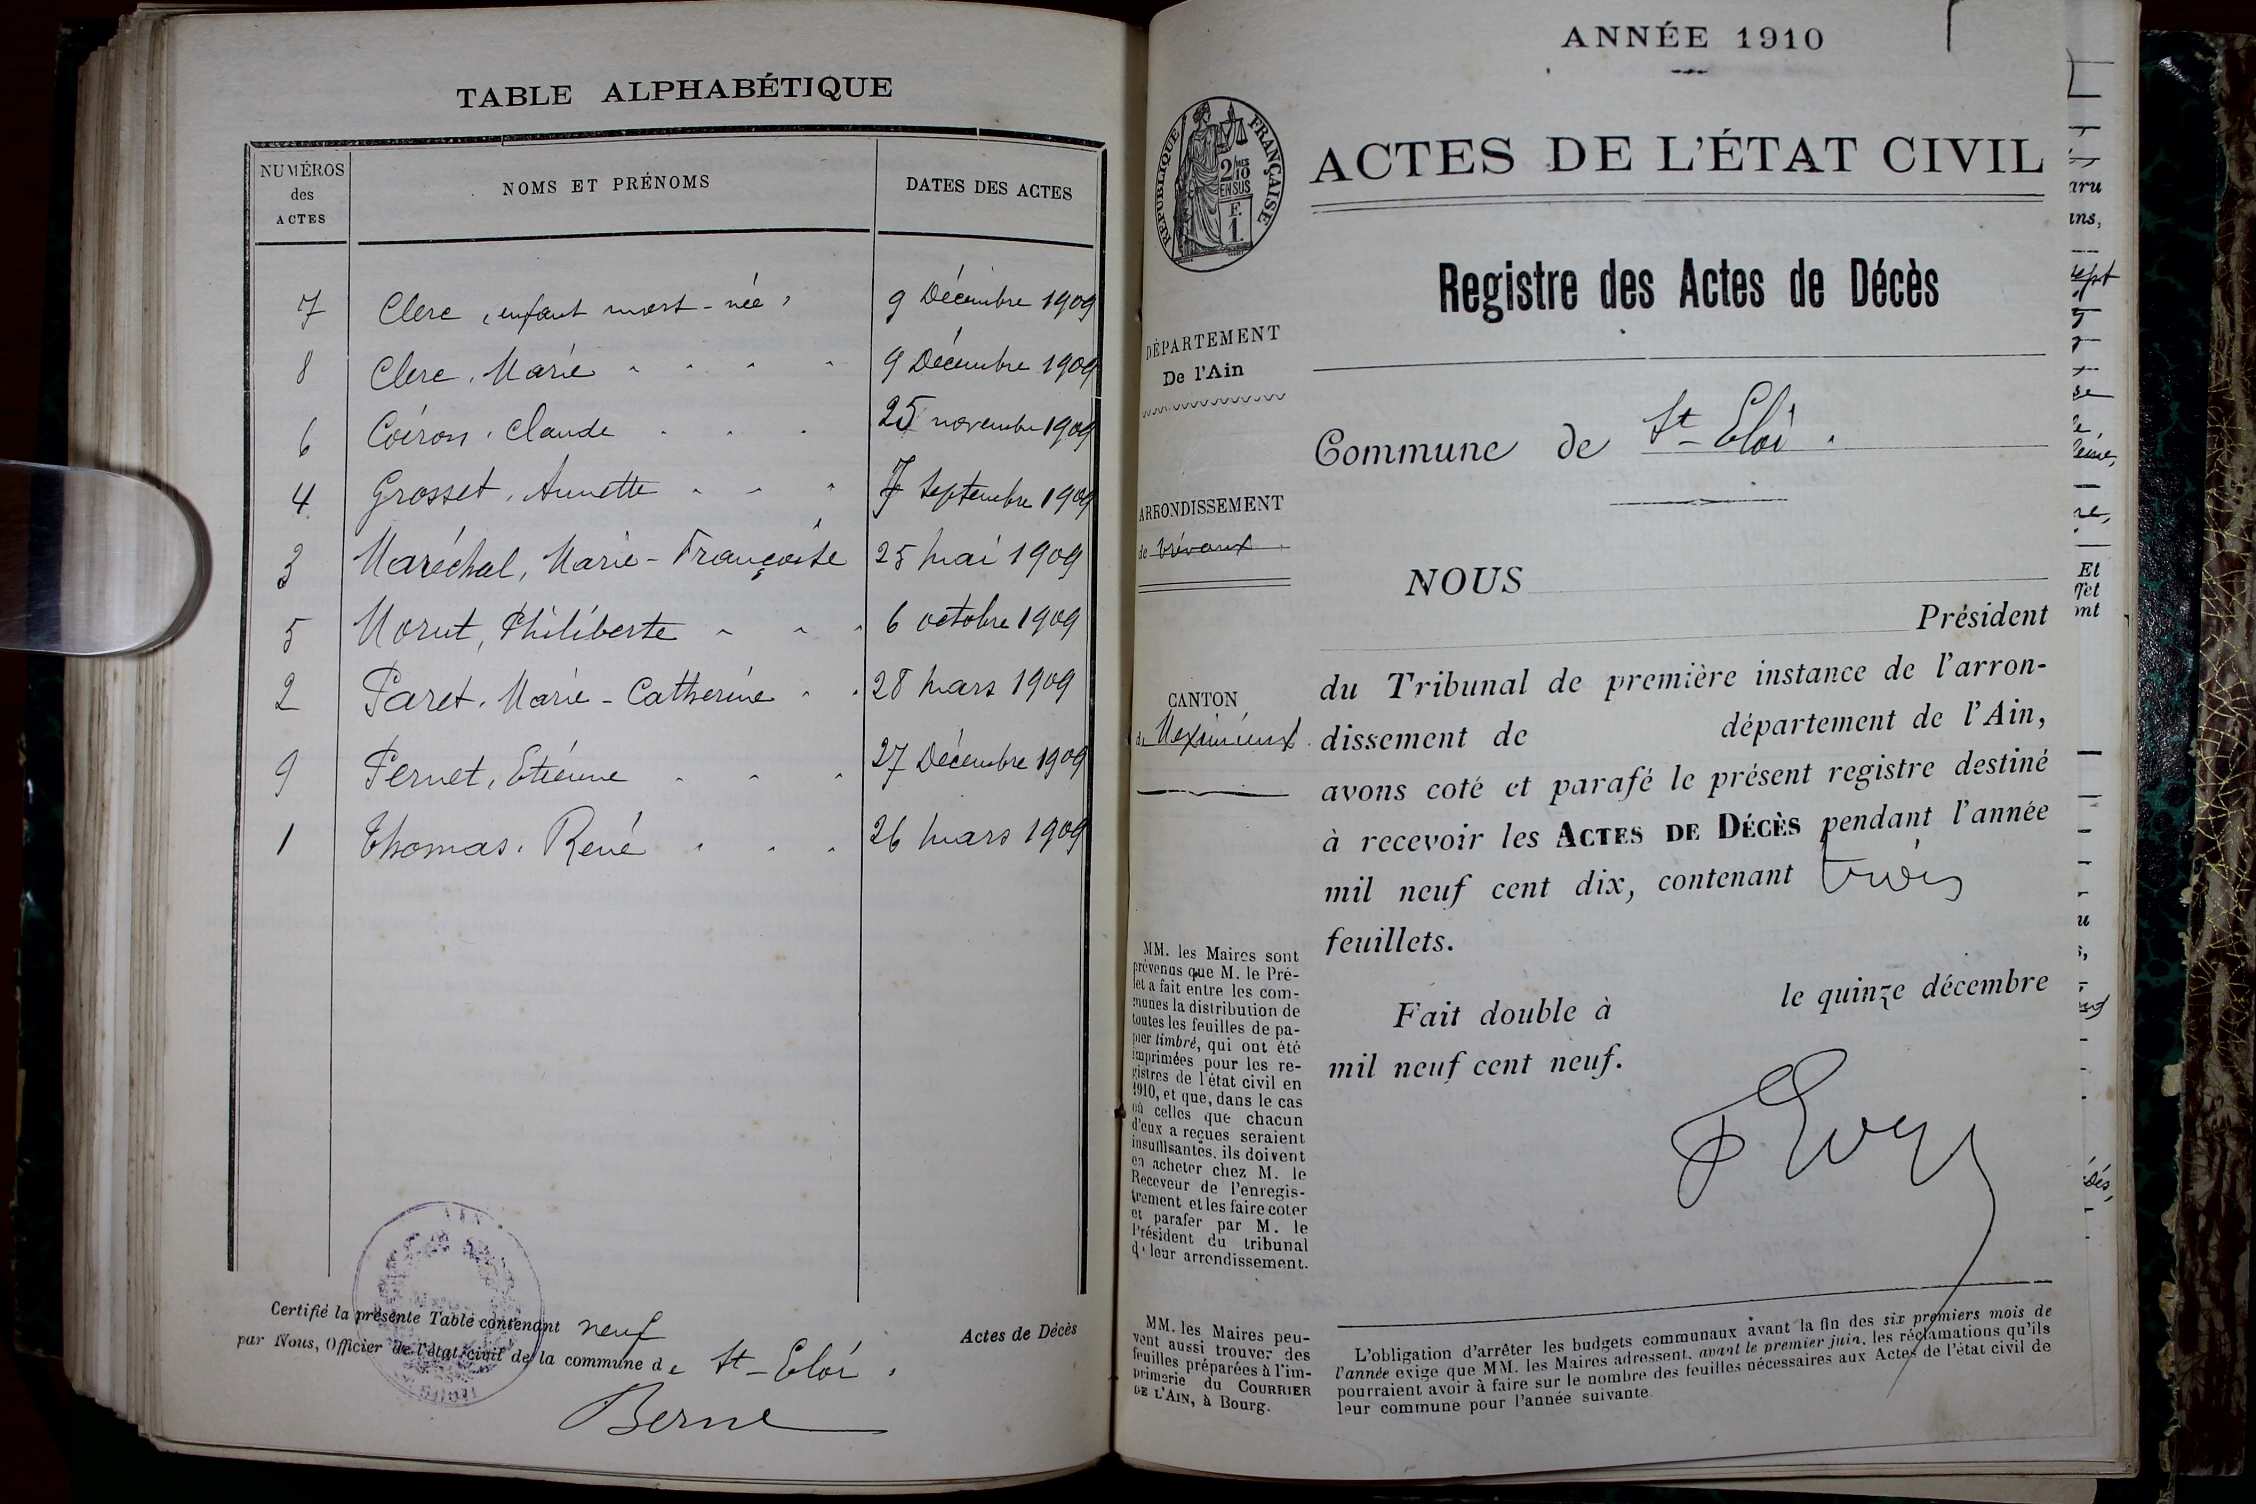 TABLE ALPHABÉTIQUE
NUMÉROS
des
ACTES
NOMS ET PRÉNOMS
DATES DES ACTES
7 Clerc, enfant mort-née, 9 Décembre 1909
8 Clerc, Marie 9 Décembre 1909
6 Coiron, Claude 25 novembre 1909
4 Grosset, Annette 7 Septembre 1909
3 Maréchal, Marie-Françoise 25 Mai 1909
5 Morut, Philiberte 6 octobre 1909
2 Paret, Marie-Catherine 28 Mars 1909
9 Pernet, Etienne 27 Décembre 1909
1 Thomas, René 26 Mars 1909
Certifié la présente Table contenant neuf Actes de Décès
par Nous, Officier de l'état civil de la commune de St-Eloi.
Berne
ANNÉE 1910
RÉPUBLIQUE FRANÇAISE
2/10 MES
EN SUS
F.
1.
ACTES DE L'ÉTAT CIVIL
Registre des Actes de Décès
DÉPARTEMENT
De l'Ain
Commune de St-Eloi.
ARRONDISSEMENT
de Trévoux
CANTON
de Meximieux
NOUS
Président
du Tribunal de première instance de l'arron-
dissement de département de l'Ain,
avons coté et parafé le présent registre destiné
à recevoir les ACTES DE DÉCÈS pendant l'année
mil neuf cent dix, contenant trois
feuillets.
Fait double à le quinze décembre
mil neuf cent neuf.
MM. les Maires sont
prévenus que M. le Pré-
fet a fait entre les com-
munes la distribution de
toutes les feuilles de pa-
pier timbré, qui ont été
imprimées pour les re-
gistres de l'état civil en
1910, et que, dans le cas
où celles que chacun
d'eux a reçues seraient
insuffisantes, ils doivent
en acheter chez M. le
Receveur de l'enregis-
trement et les faire coter
et parafer par M. le
Président du tribunal
de leur arrondissement.
MM. les Maires peu-
vent aussi trouver des
feuilles préparées à l'im-
primerie du COURRIER
DE L'AIN, à Bourg.
L'obligation d'arrêter les budgets communaux avant la fin des six premiers mois de
l'année exige que MM. les Maires adressent, avant le premier juin, les réclamations qu'ils
pourraient avoir à faire sur le nombre des feuilles nécessaires aux Actes de l'état civil de
leur commune pour l'année suivante.